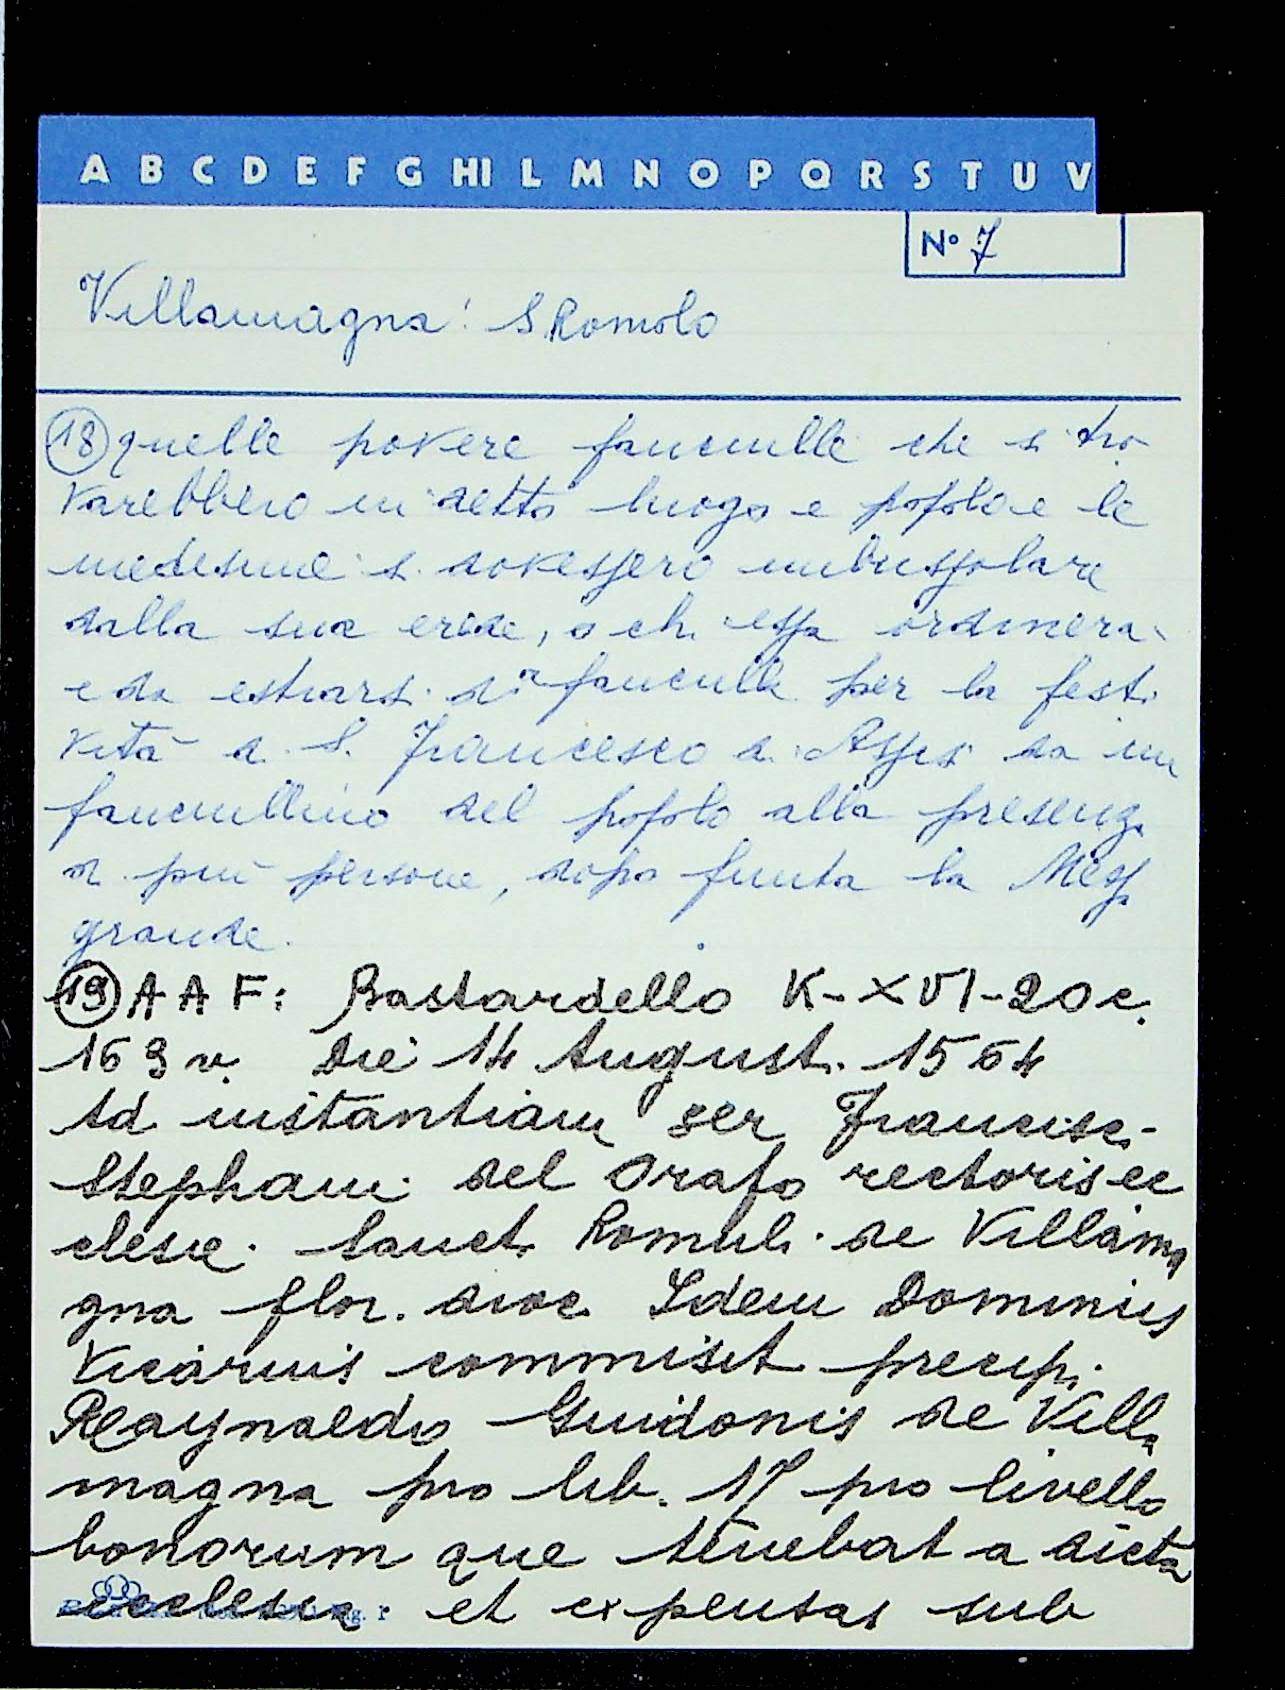 A B C D E F G HI L M N O P Q R S T U V
N° 7
Villamagna: S. Romolo
18 quelle povere fanciulle che si tro
varebbero in detto luogo e popolo e le
medesime si dovessero imbussolare
dalla sua erede, o chi essa ordinera
e da estrarsi da fanciulle per la festi
vità di S. Francesco di Assisi da un
fanciullino del popolo alla presenza
di più persone, dopo finita la Messa
grande.
19 A A F: Bastardello K-XVI-20 c.
169 v. Die 14 Augusti 1564
Ad instantiam ser Francisci
Stephani del Orafo rectoris ec
clesie Sancti Romuli de Villama
gna flor. dioc. Idem Dominus
Vicarius commisit precipi
Raynaldo Guidonis de Villa
magna pro lib. 17 pro livello
bonorum que tenebat a dicta
ecclesia et expensas sub